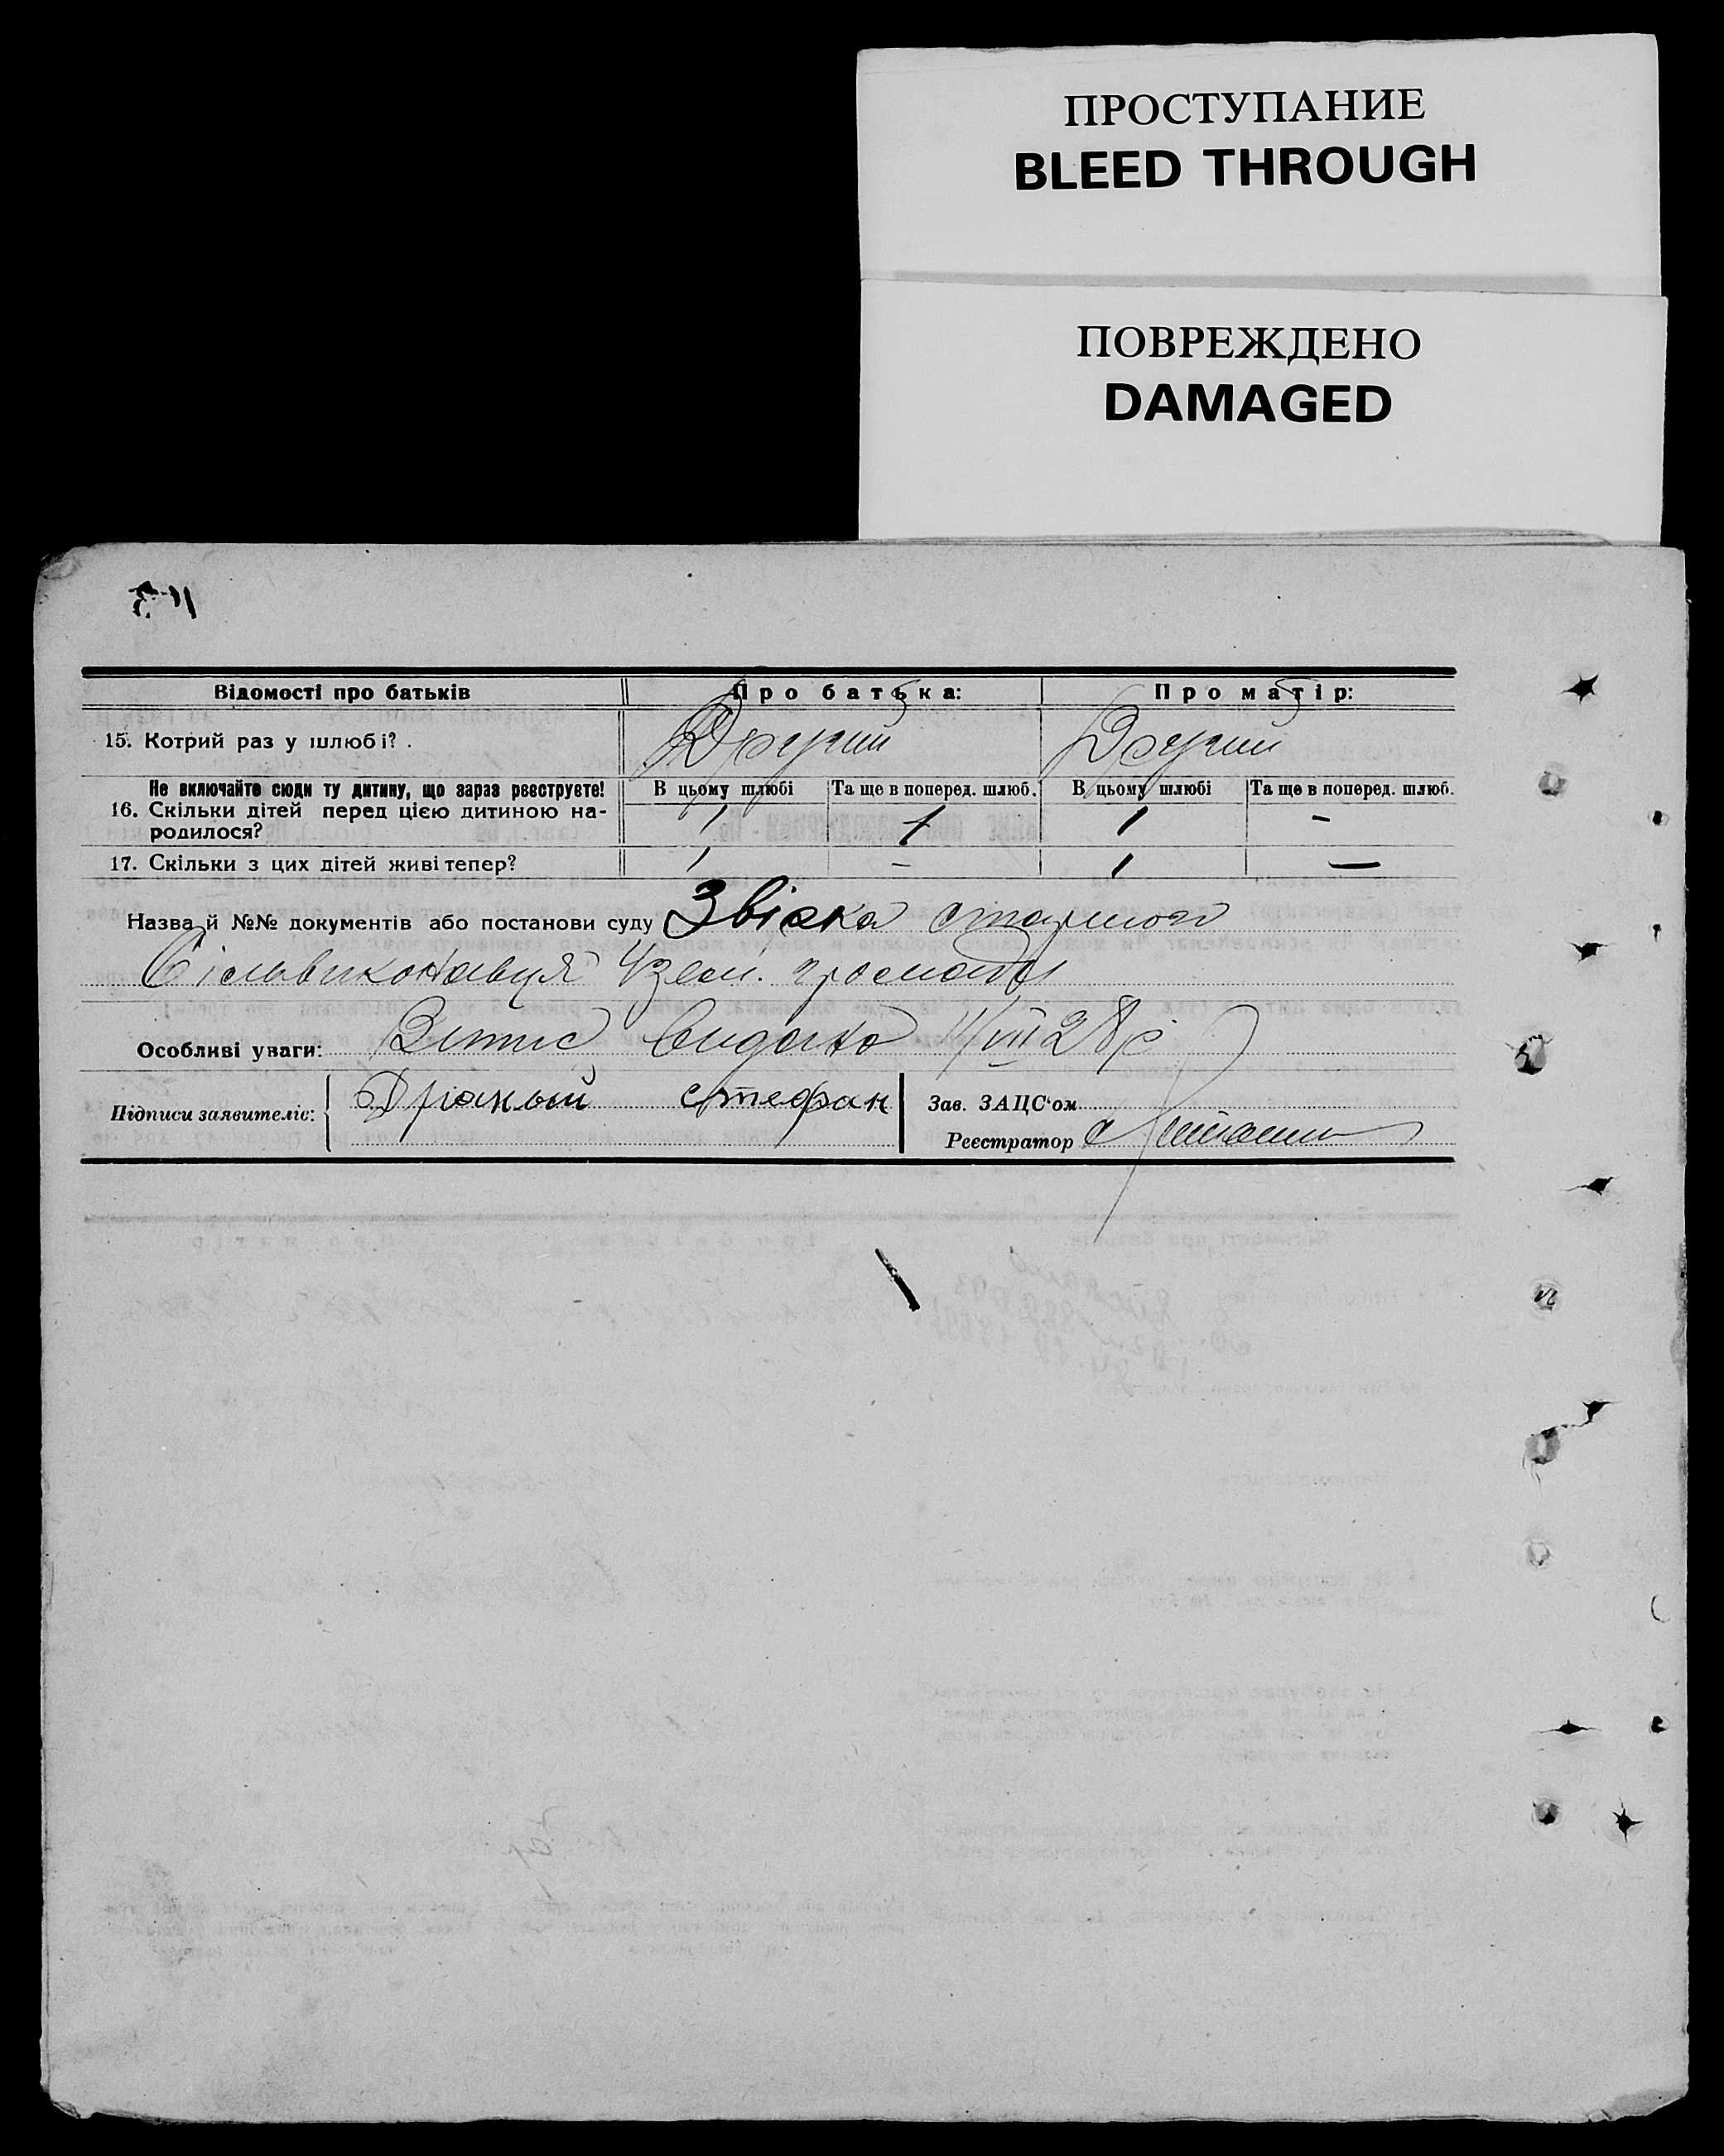 ПРОСТУПАНИЕ
BLEED THROUGH
ПОВРЕЖДЕНО
DAMAGED
Відомості про батьків Про батька: Про матір:
15. Котрий раз у шлюбі? . Другий Другий
Не включайте сюди ту дитину, що зараз реєструєте! В цьому шлюбі Та ще в поперед. шлюб. В цьому шлюбі Та ще в поперед. шлюб.
16. Скільки дітей перед цією дитиною на-
родилося? 1 1 1 -
17. Скільки з цих дітей живі тепер? 1 - 1 -
Назва й №№ документів або постанови суду Звістка старшого
Сільвиконавця 4 зем. громади
Особливі уваги: Витяг видано 11/VIII 28 р
Підписи заявителів: Стефан
Зав. ЗАЦС'ом
Реєстратор